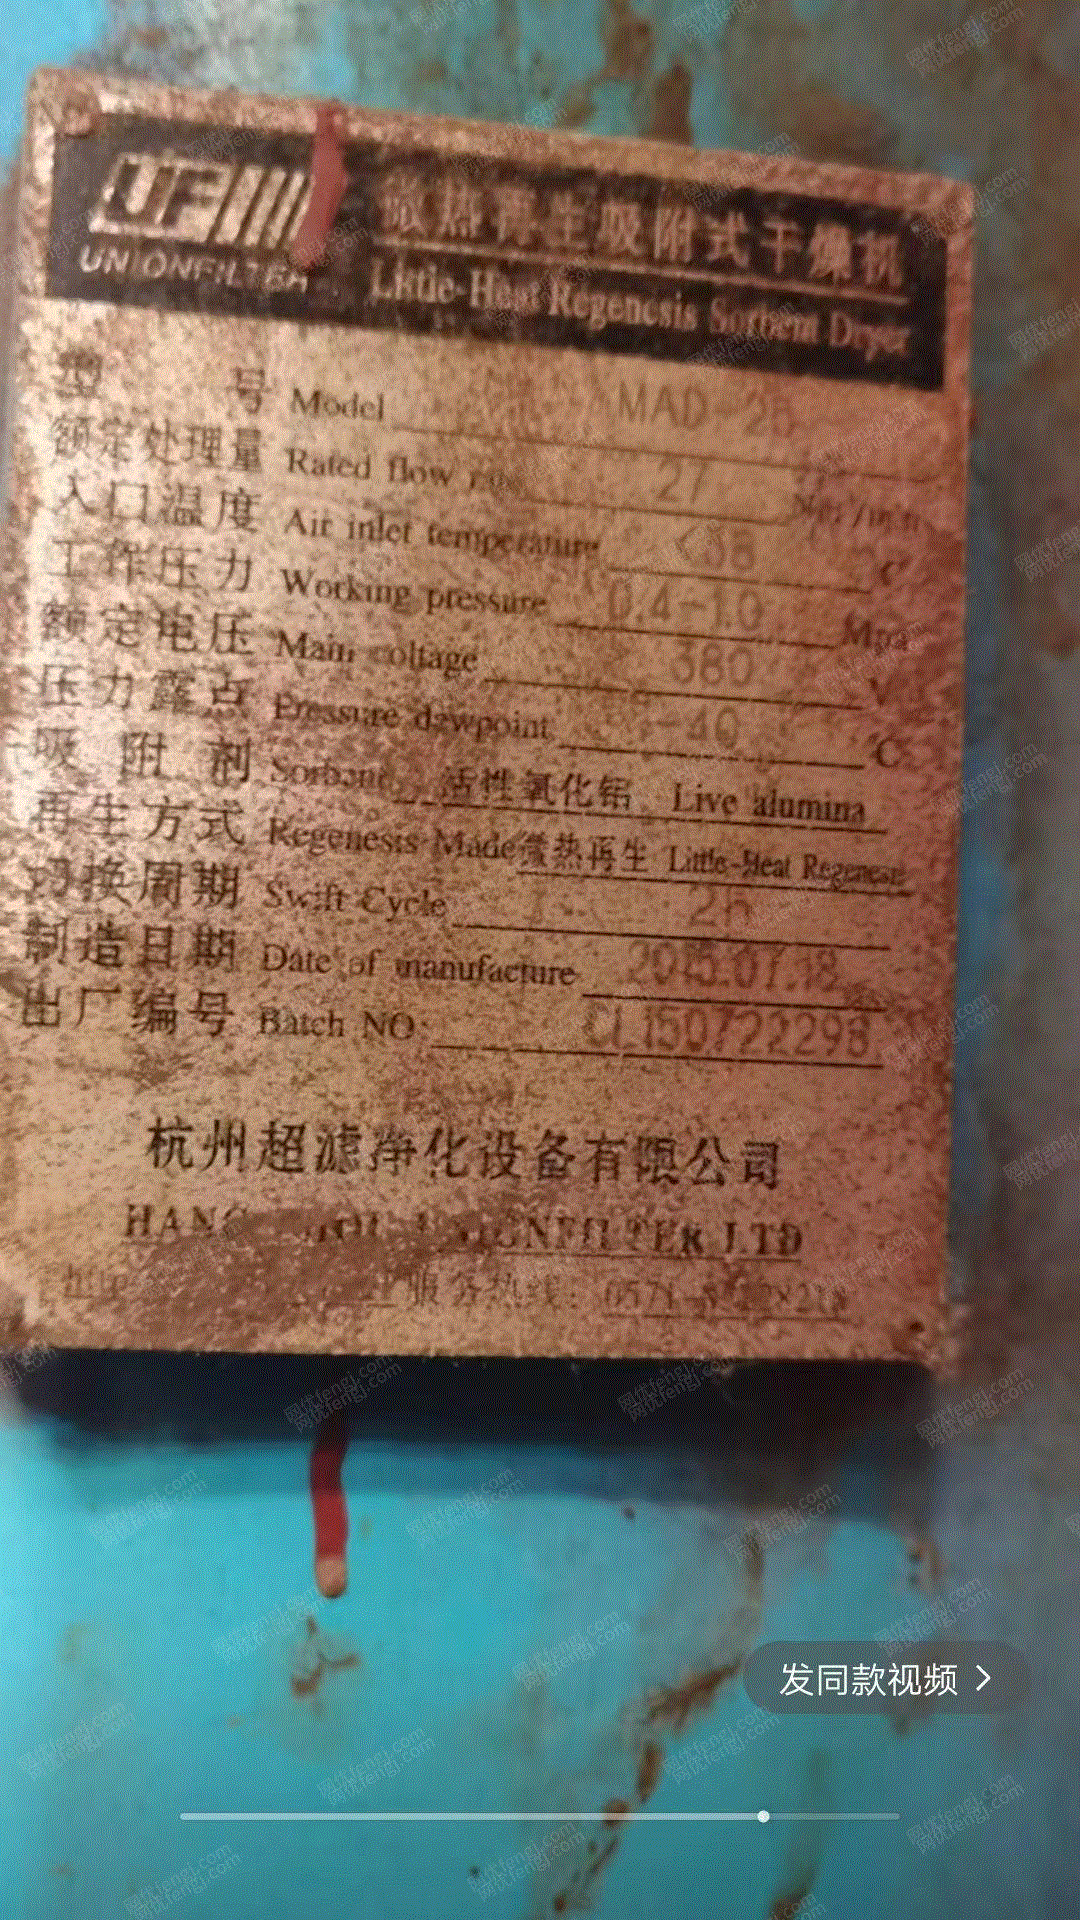 UF
UNIONFILTER
微热再生吸附式干燥机
Little-Heat Regenesis Sorbent Dryer
型 号 Model MAD-25
额定处理量 Rated flow rate 27 Nm³/min
入口温度 Air inlet temperature <38 ℃
工作压力 Working pressure 0.4-1.0 Mpa
额定电压 Main voltage 380 V
压力露点 Pressure dewpoint -40 ℃
吸附剂 Sorbent 活性氧化铝 Live alumina
再生方式 Regenesis Made 微热再生 Little-Heat Regenesis
切换周期 Swift Cycle
制造日期 Date of manufacture 2015.07.18
出厂编号 Batch NO: CL150722298
杭州超滤净化设备有限公司
UNIONFILTER LTD
服务热线: 0571-
发同款视频 >
网优fengj.com